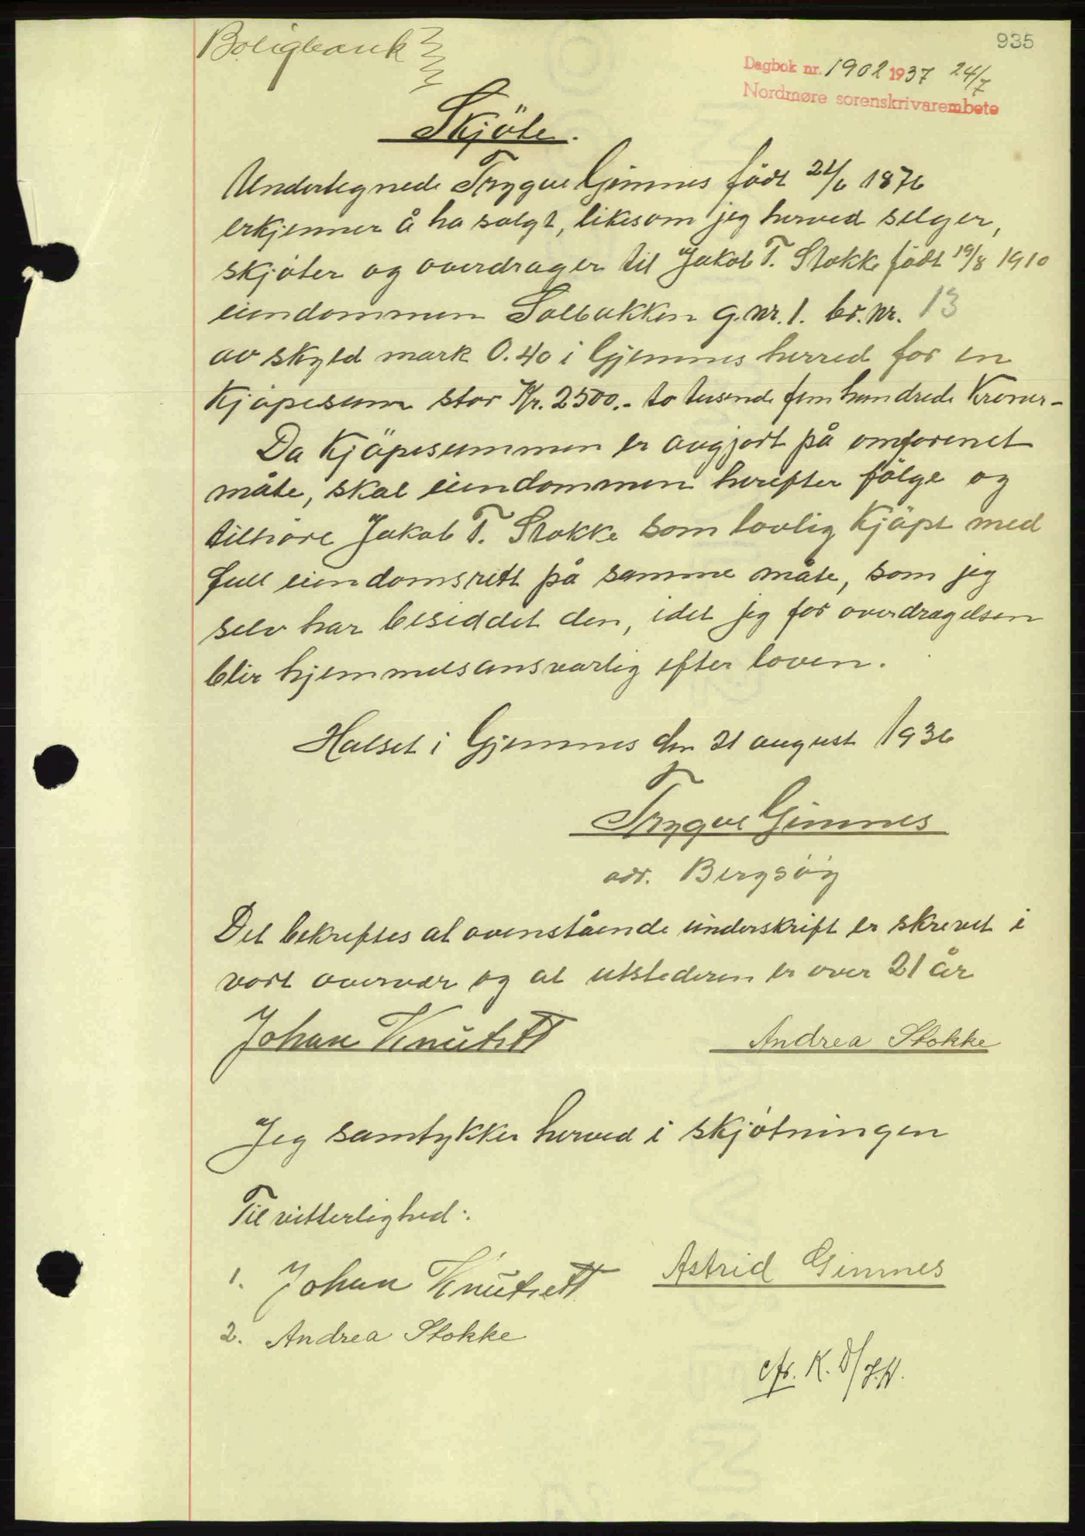 Boligbank
935
Dagbok nr. 1902 1937 24/7
Nordmøre sorenskrivarembete
Skjöte.
Undertegnede Trygve Gimnes födt 21/6 1876
erkjenner å ha solgt, likesom jeg herved selger,
skjöter og overdrager til Jakob T. Stokke födt 19/8 1910
eiendommen Solbakken g.nr. 1. br.nr. 13
av skyld mark 0.40 i Gjemnes herred for en
Kjöpesum stor Kr. 2500.- to tusende fem hundrede Kroner-
Da Kjöpesummen er avgjort på omforenet
måte, skal eiendommen herefter fölge og
tilhöre Jakob T. Stokke som lovlig Kjöpt med
full eiendomsrett på samme måte, som jeg
selv har besiddet den, idet jeg for overdragelsen
blir hjemmelsansvarlig efter loven.
Halset i Gjemnes den 21 august 1936
Trygve Gimnes
adr. Bergsöy
Det bekreftes at ovenstående underskrift er skrevet i
vort overvær og at utstederen er over 21 år
Johan Knutsett Andrea Stokke
Jeg samtykker herved i skjötningen
Til vitterlighed:
1. Johan Knutsett Astrid Gimnes
2. Andrea Stokke
cfr. K. D/J.H.